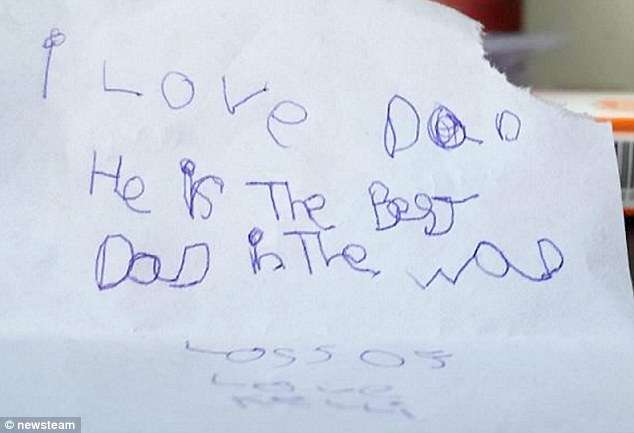 i LOVe DaD
He is The BesT
DaD in The WaD
Loss os
Love
© newsteam